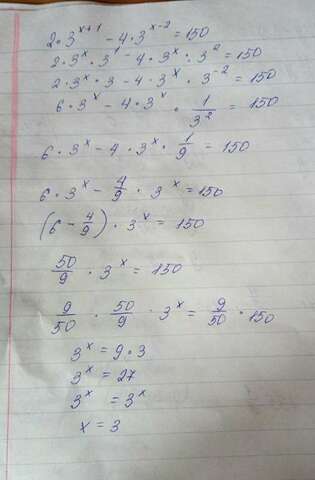 2·3^(x+1) - 4·3^(x-2) = 150
2·3^x·3^1 - 4·3^x·3^2 = 150
2·3^x·3 - 4·3^x·3^(-2) = 150
6·3^x - 4·3^x·1/3^2 = 150
6·3^x - 4·3^x·1/9 = 150
6·3^x - 4/9·3^x = 150
(6 - 4/9)·3^x = 150
50/9·3^x = 150
9/50·50/9·3^x = 9/50·150
3^x = 9·3
3^x = 27
3^x = 3^x
x = 3